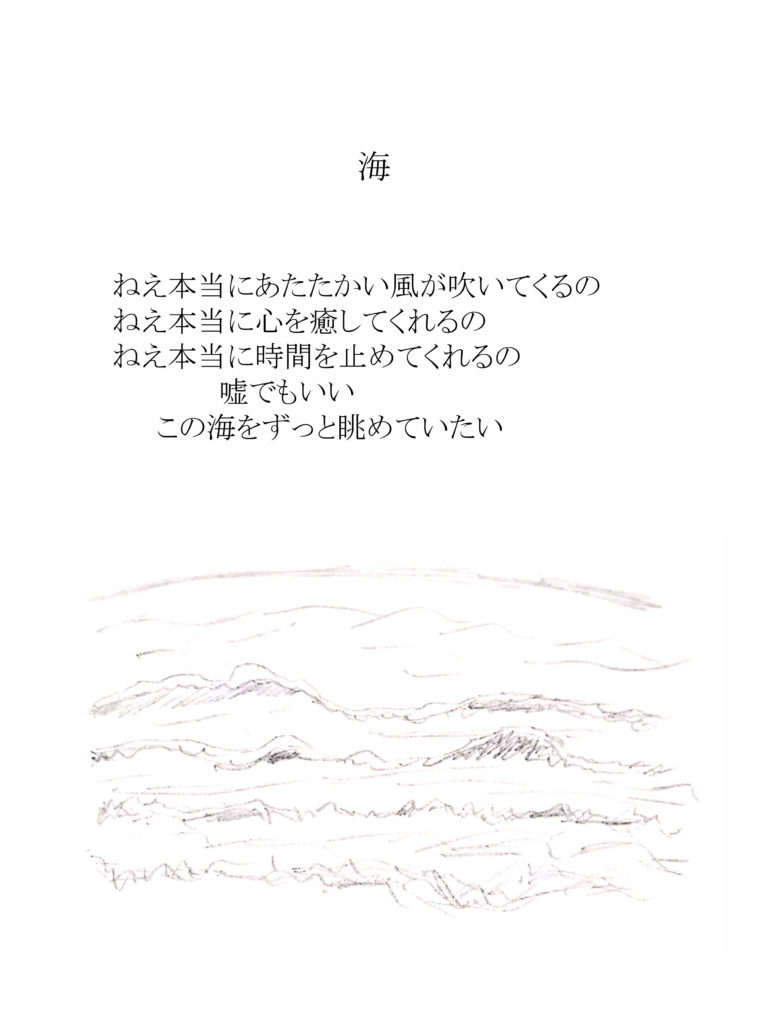 海
ねえ本当にあたたかい風が吹いてくるの
ねえ本当に心を癒してくれるの
ねえ本当に時間を止めてくれるの
嘘でもいい
この海をずっと眺めていたい